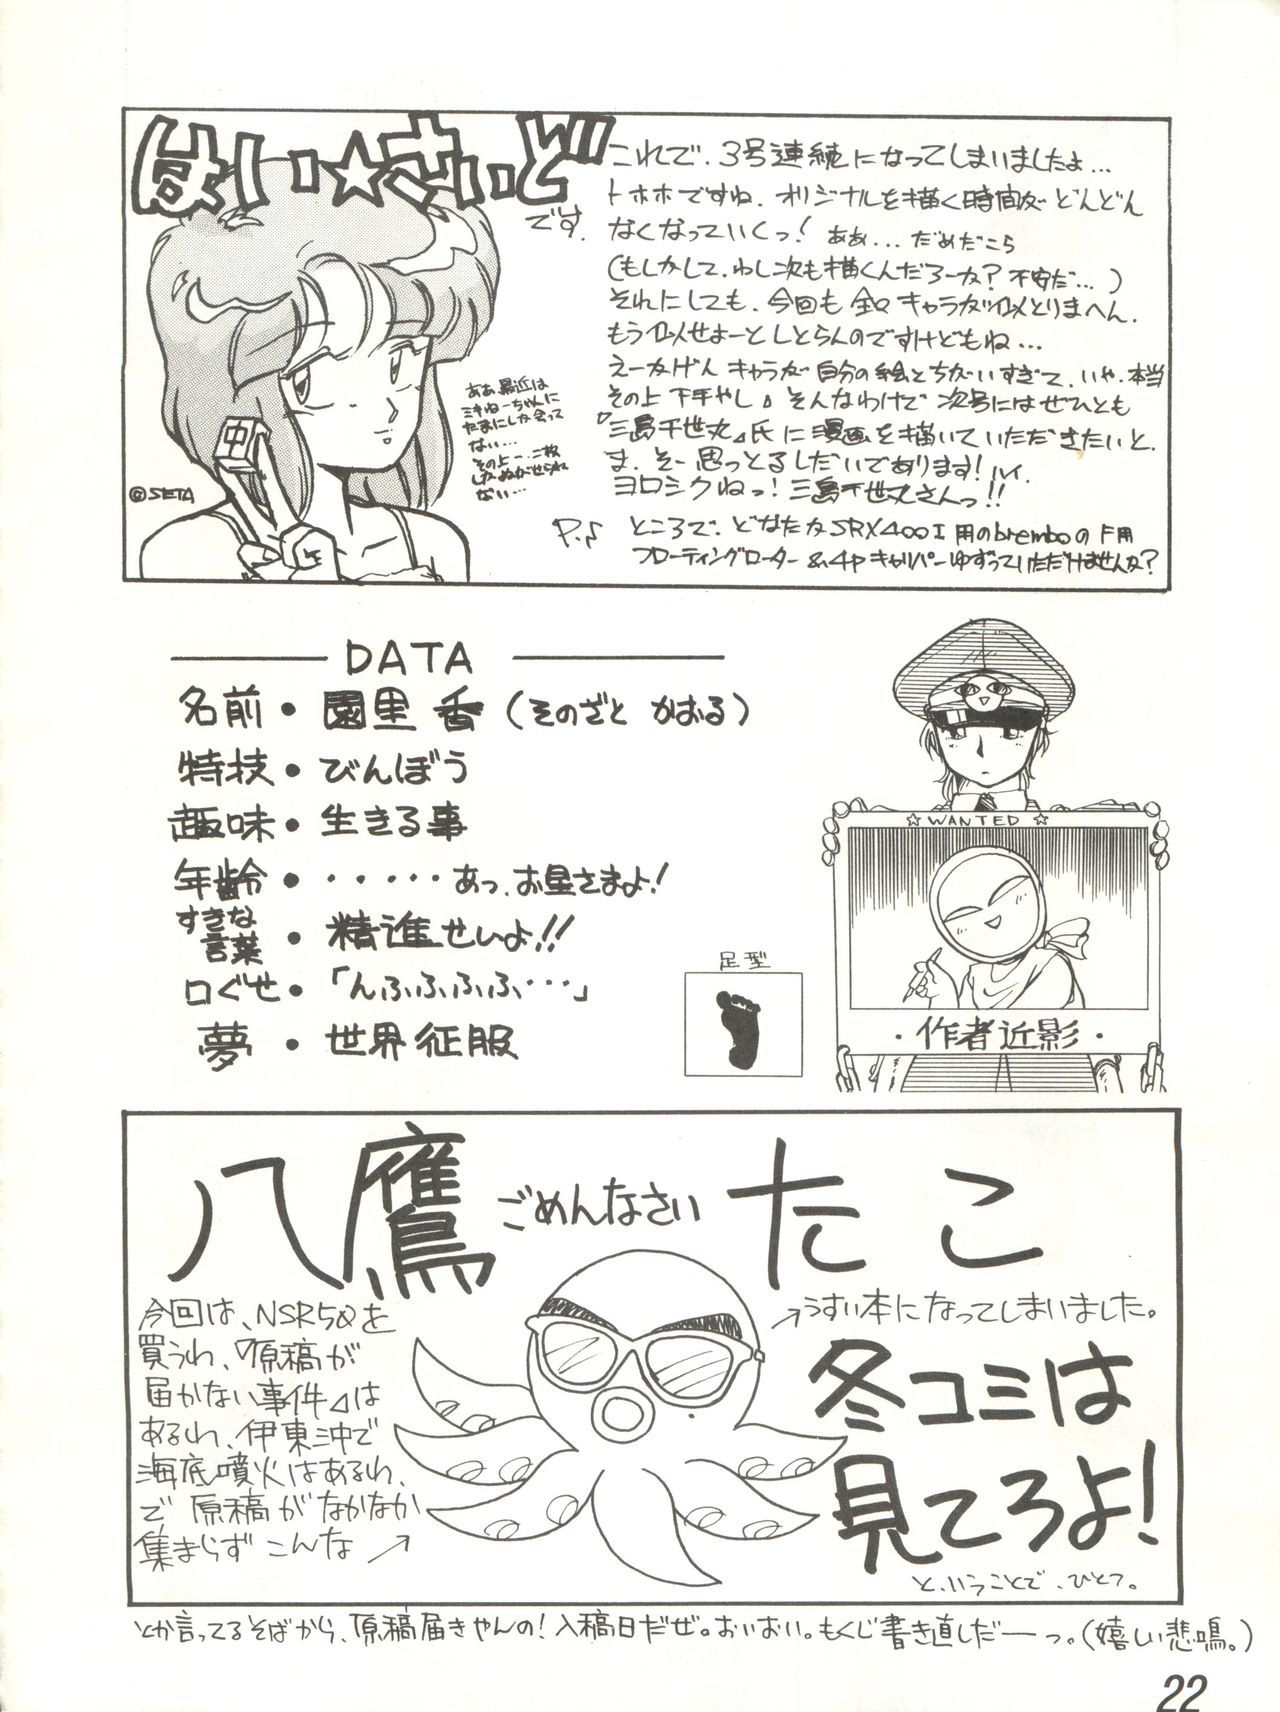 はい☆さいど
です.
これで、3号連続になってしまいましたよ…
トホホですね、オリジナルを描く時間がどんどん
なくなっていくっ! ああ…だめだこら
(もしかして、わし次も描くんだろーか?不安だ…)
それにしても、今回も全々キャラが似とりまへん、
もう似せよーとしとらんのですけどもね…
えーかげんキャラが自分の絵とちがいすぎて、いや、本当
その上下手やし」そんなわけで次号にはぜひとも
『三島千世丸』氏に漫画を描いていただきたいと、
ま、そー思っとるしだいであります!ハイ、
ヨロシクねっ!三島千世丸さんっ!!
P.♪ ところで、どなたかSRX400I用のbremboのF用
フローティングローター&4pキャリパーゆずっていただけませんか?
ああ、最近は
ミキねーちゃんに
たまにしか会って
ない…
その上一、二枚
しかぬがせられ
ない…
中
©SETA
DATA
名前・園里 香(そのざと かおる)
特技・びんぼう
趣味・生きる事
年齢・・・・・・あっ、お星さまよ!
すきな
言葉・精進せいよ!!
口ぐせ・「んふふふふふ…」
夢・世界征服
足型
☆WANTED☆
・作者近影・
八鷹 ごめんなさい たこ
今回は、NSR50を
買うわ、『原稿が
届かない事件』は
あるわ、伊東沖で
海底噴火はあるわ、
で 原稿がなかなか
集まらず こんな
うすい本になってしまいました。
冬コミは
見てろよ!
と、いうことで、ひとつ。
とか言ってるそばから、原稿届きやんの!入稿日だぜ。おいおい。もくじ書き直しだーっ。(嬉しい悲鳴。)
22